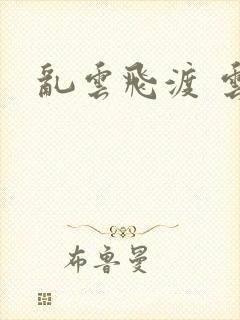 亂雲飛渡 雲
布魯曼